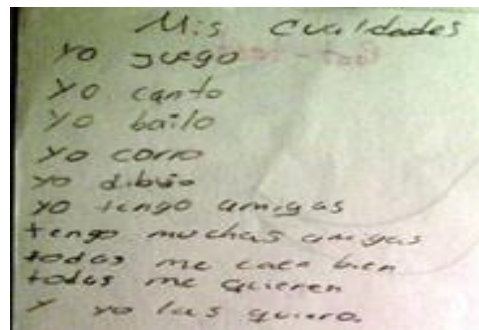 Mis Cualidades
yo juego
yo canto
yo bailo
yo corro
yo dibujo
yo tengo amigas
tengo muchas amigas
todas me caen bien
todas me quieren
y yo las quiero.